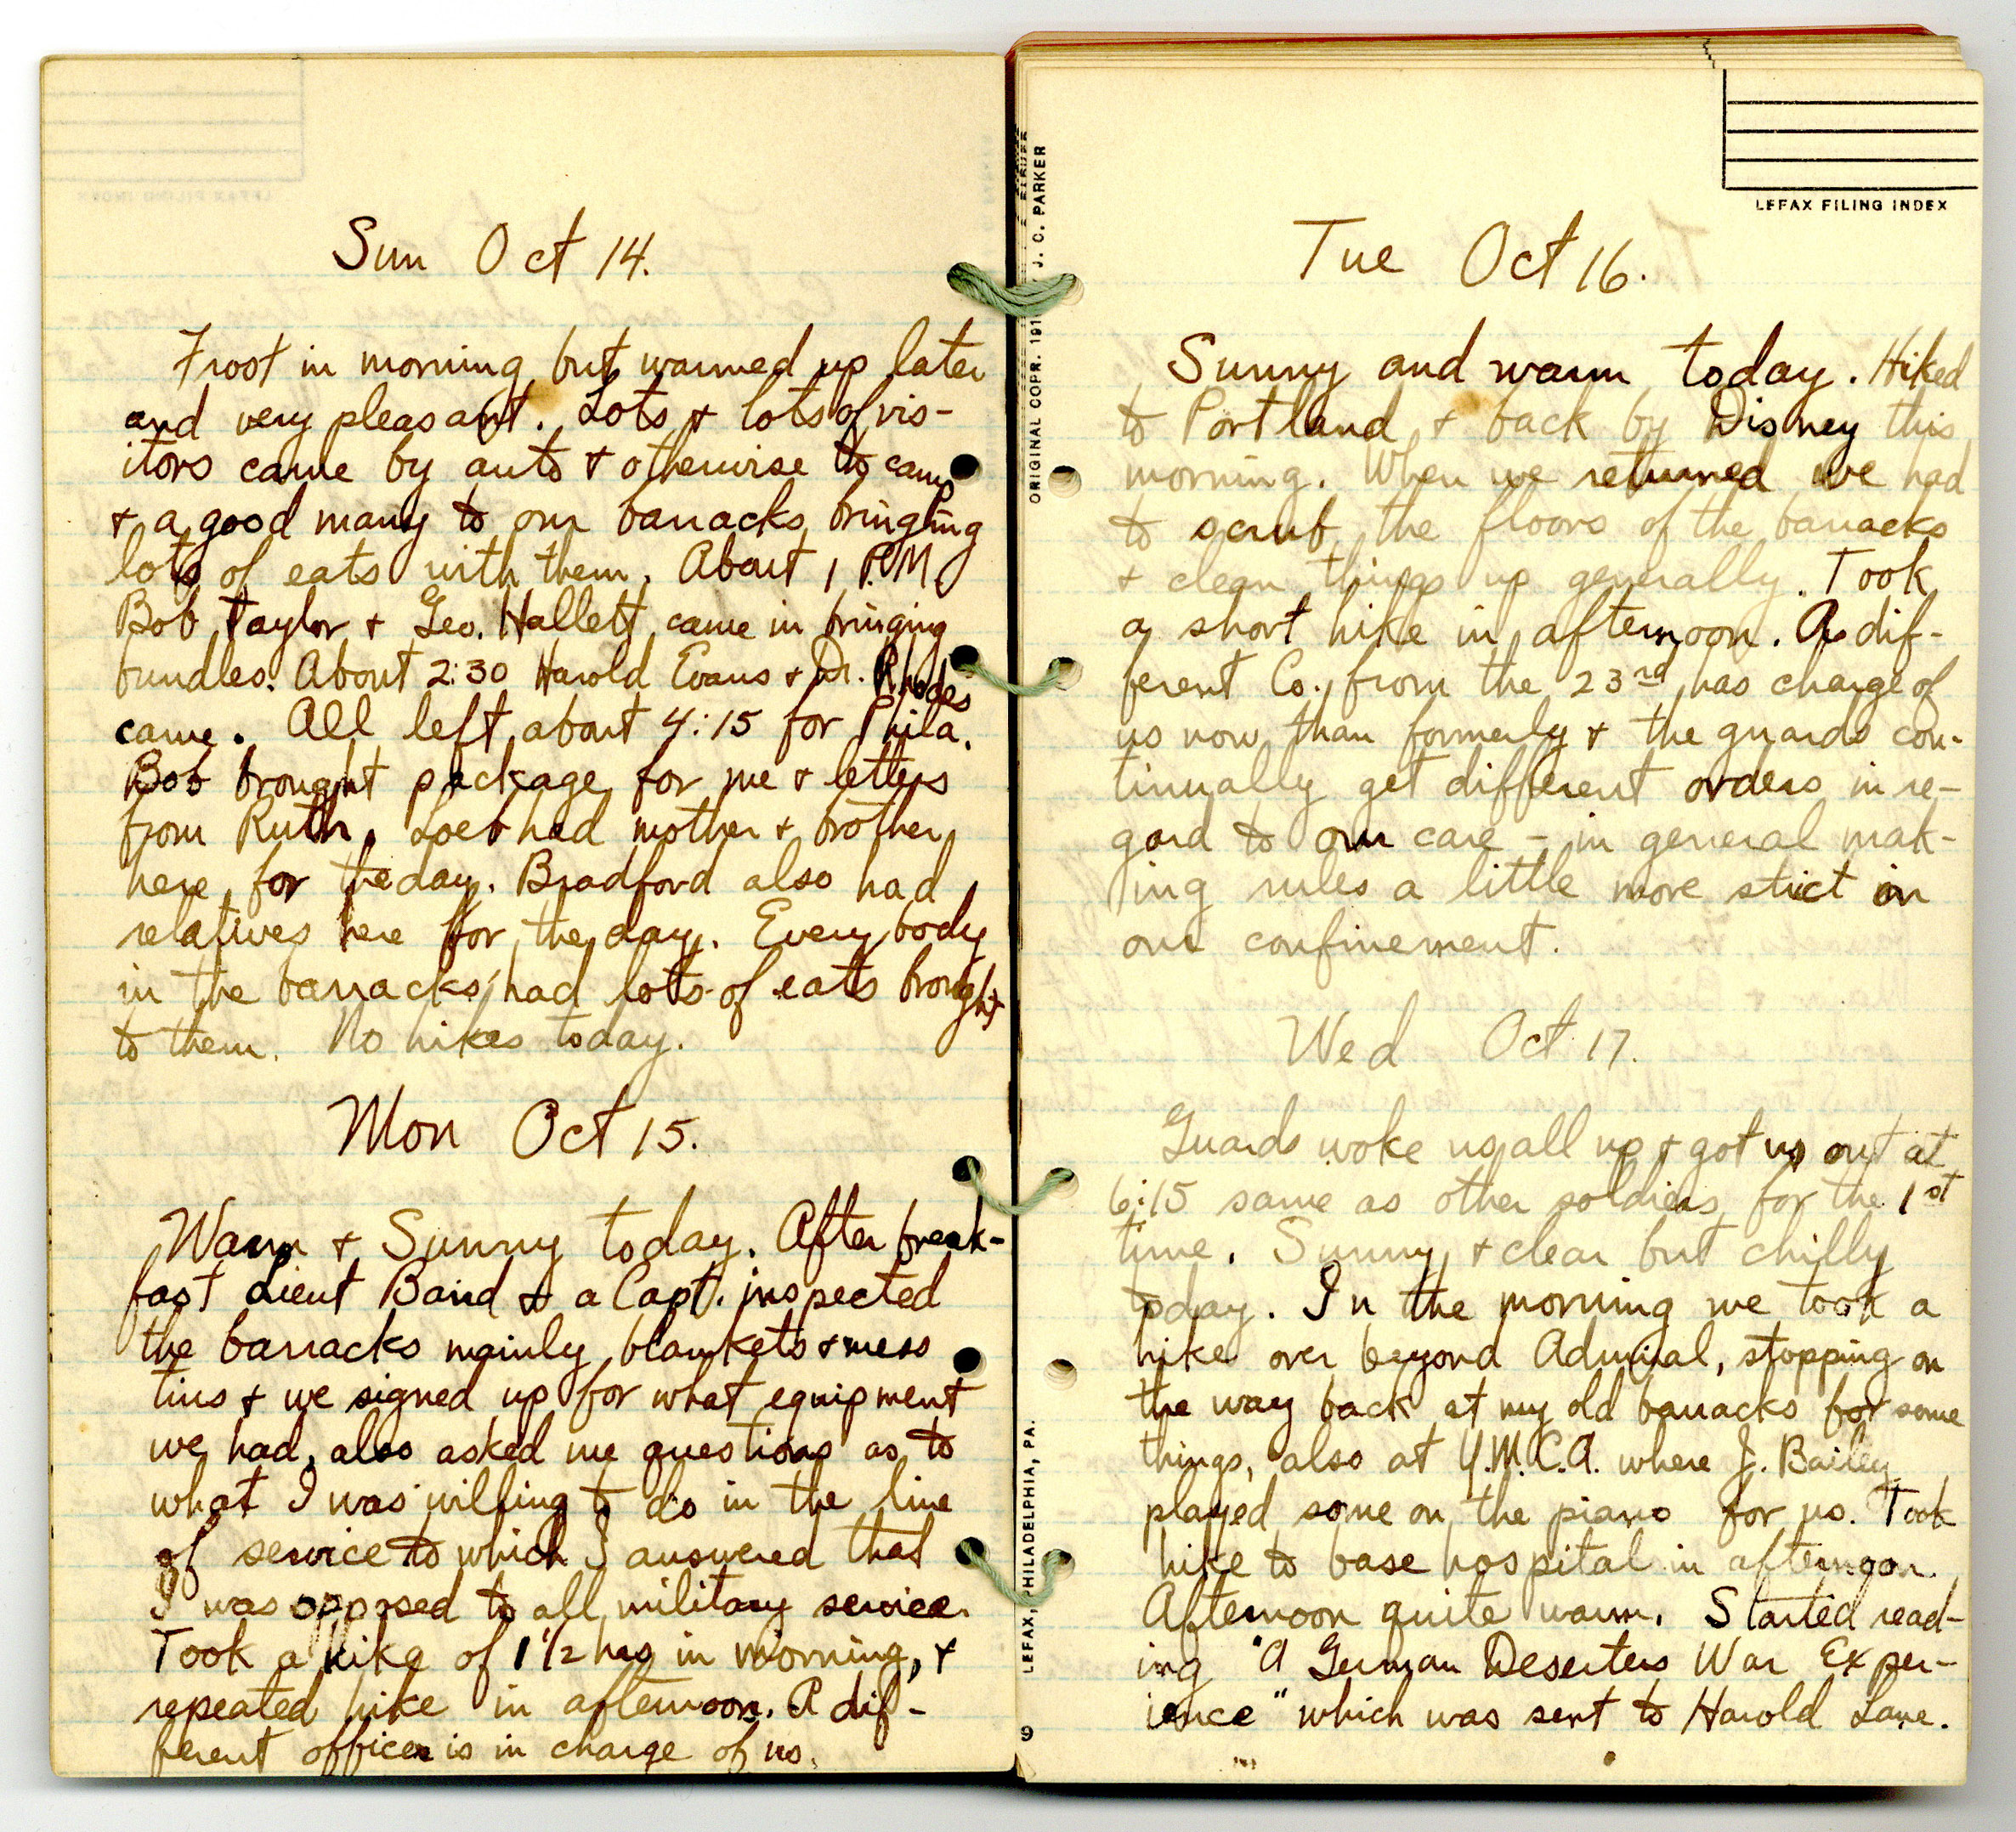 Sun Oct 14.
Frost in morning but warmed up later
and very pleasant. Lots & lots of vis-
itors came by auto & otherwise to camp
& a good many to our barracks bringing
lots of eats with them. About 1 P.M.
Bob Taylor & Geo. Hallett came in bringing
bundles. About 2:30 Harold Evans & Dr. Rhodes
came. All left about 4:15 for Phila.
Bob brought package for me & letters
from Ruth. Loeb had mother & brother
here for the day. Bradford also had
relatives here for the day. Every body
in the barracks had lots of eats brought
to them. No hikes today.
Mon Oct 15.
Warm & Sunny today. After break-
fast Lieut Baird & a Capt. inspected
the barracks mainly blankets & mess
tins & we signed up for what equipment
we had, also asked me questions as to
what I was willing to do in the line
of service to which I answered that
I was opposed to all military service.
Took a hike of 1 1/2 hrs in morning, &
repeated hike in afternoon. A dif-
ferent officer is in charge of us.
LEFAX FILING INDEX
ORIGINAL COPR. 191 J. C. PARKER
Tue Oct 16.
Sunny and warm today. Hiked
to Portland & back by Disney this
morning. When we returned we had
to scrub the floors of the barracks
& clean things up generally. Took
a short hike in afternoon. A dif-
ferent Co. from the 23rd has charge of
us now than formerly & the guards con-
tinually get different orders in re-
gard to our care - in general mak-
ing rules a little more strict in
our confinement.
Wed Oct 17.
Guards woke us all up & got us out at
6:15 same as other soldiers for the 1st
time. Sunny & clear but chilly
today. In the morning we took a
hike over beyond Admiral, stopping on
the way back at my old barracks for some
things, also at Y.M.C.A. where J. Bailey
played some on the piano for us. Took
hike to base hospital in afternoon.
Afternoon quite warm. Started read-
ing "A German Deserters War Exper-
ience" which was sent to Harold Lane.
LEFAX, PHILADELPHIA, PA.
9